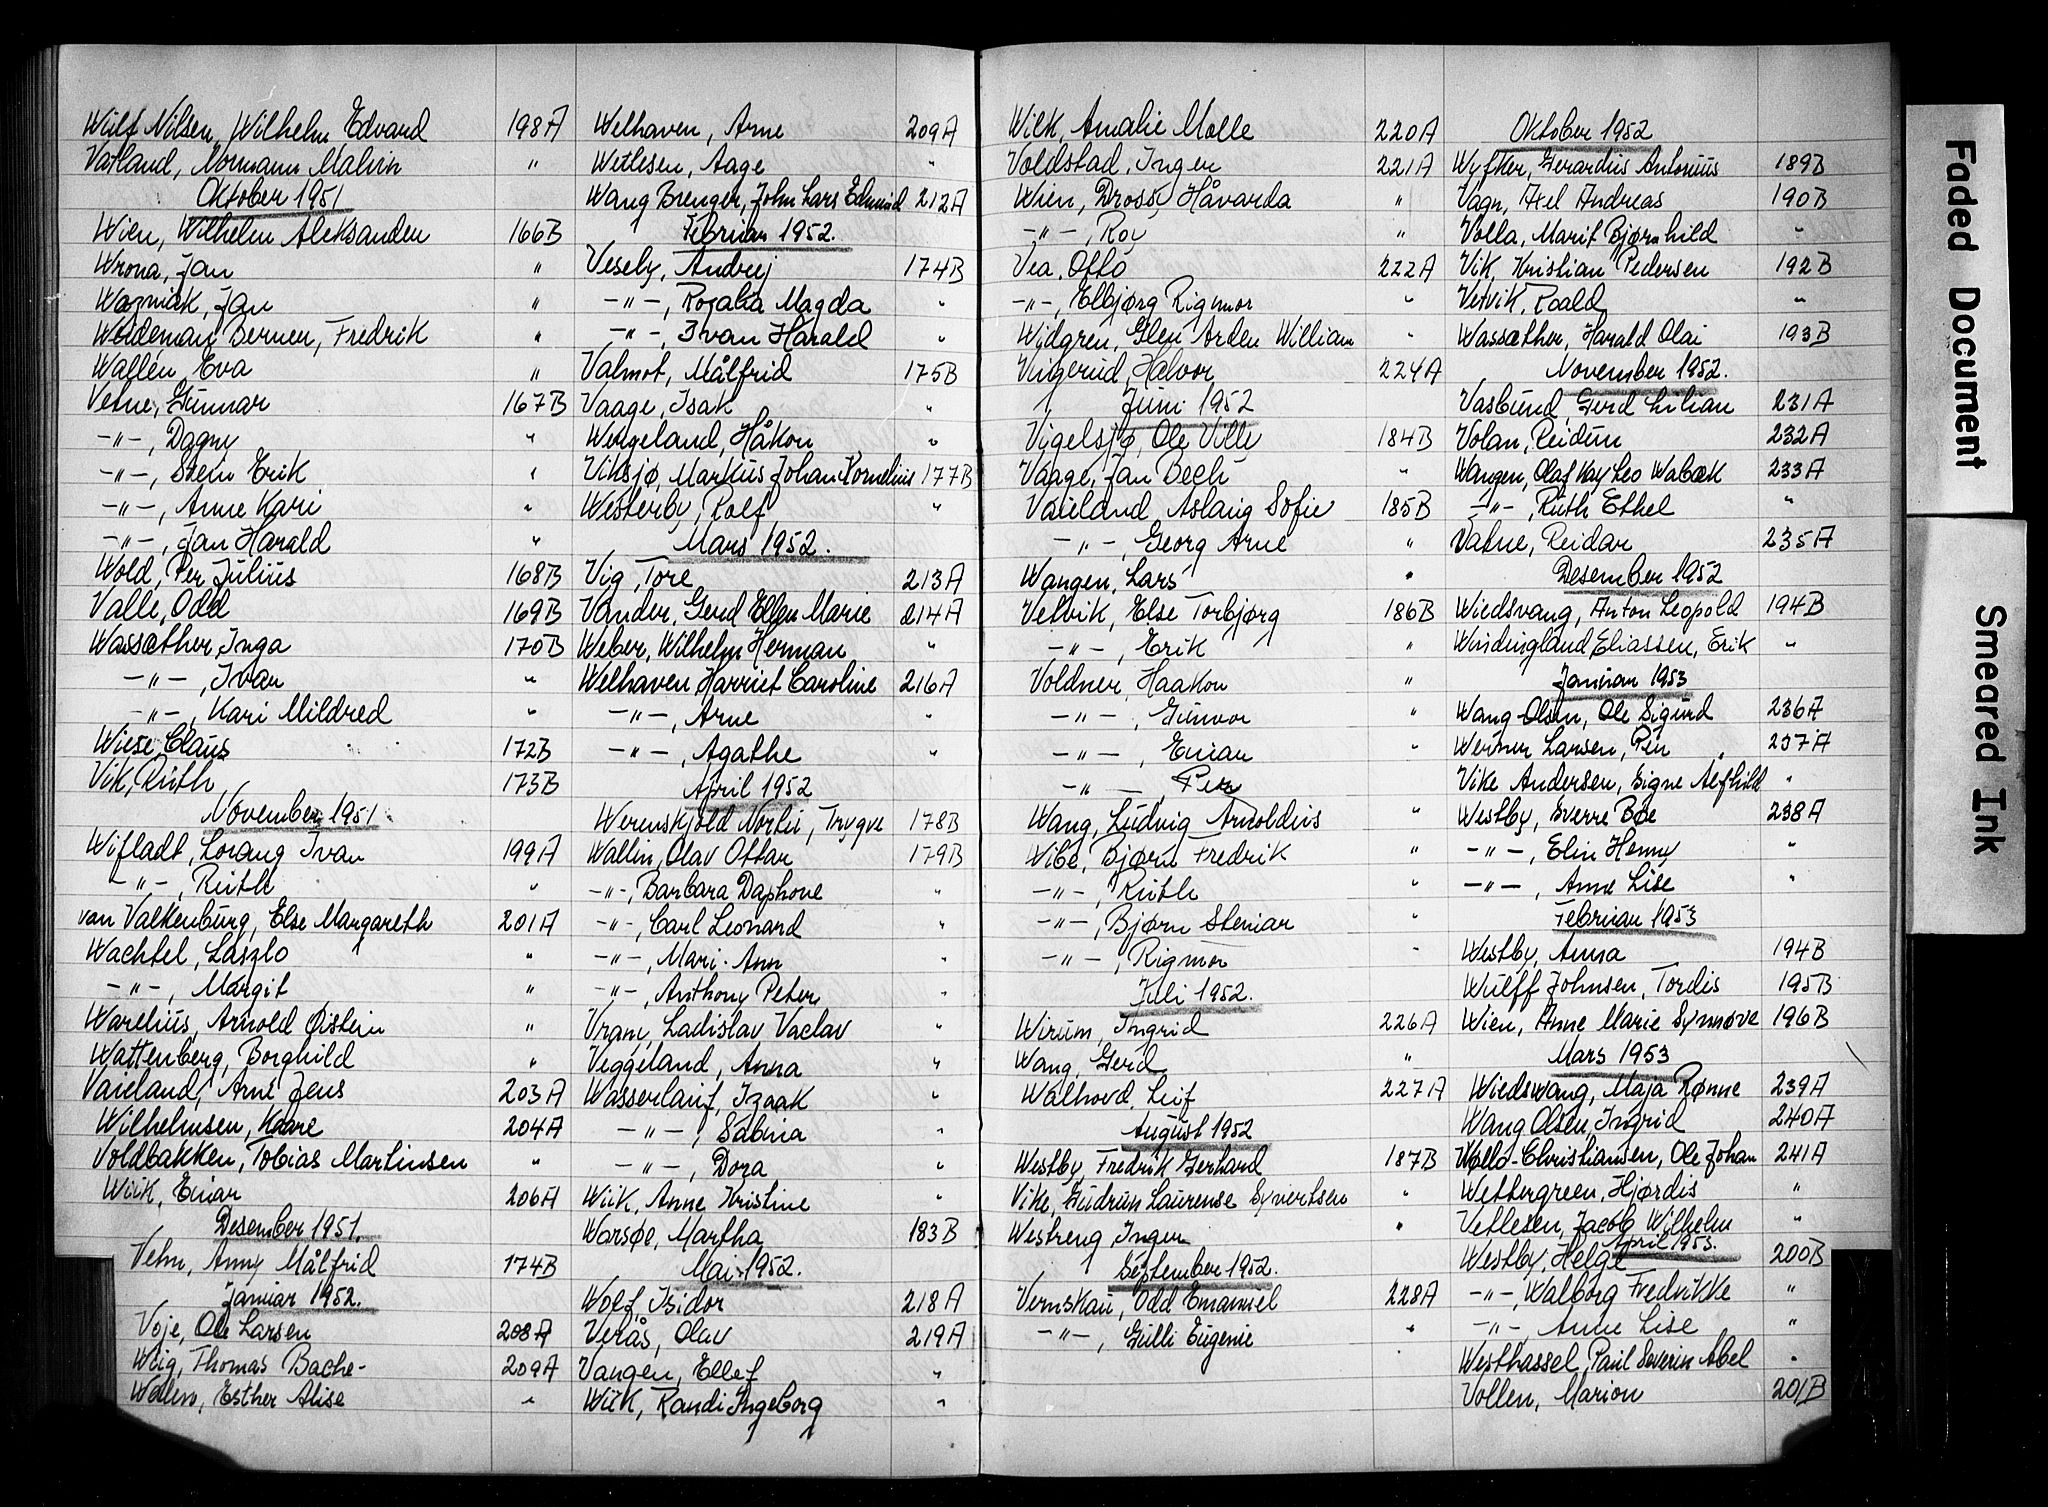 Wulf Nilsen, Wilhelm Edvard 198A
Vatland, Normann Malvin "
Oktober 1951
Wien, Wilhelm Aleksander 166B
Wrona, Jan "
Wozniak, Jan "
Weideman Berner, Fredrik "
Wallén, Eva "
Vetne, Gunnar 167B
-"-, Dagny "
-"-, Svein Erik "
-"-, Anne Kari "
-"-, Jan Harald "
Wold, Per Julius 168B
Valle, Odd 169B
Wassæther, Inga 170B
-"-, Ivar "
-"-, Kari Mildred "
Wiese, Claus 172B
Vik, Ruth 173B
November 1951
Wifladt, Lorang Ivar 199A
-"-, Ruth "
van Valkenburg, Else Margareth 201A
Wachtel, Laszlo "
-"-, Margit "
Warelius, Arnold Øistein "
Wattenberg, Borghild "
Vaieland, Arne Jens 203A
Wilhelmsen, Kaare 204A
Voldbakken, Tobias Martinsen "
Wiik, Einar 206A
Desember 1951.
Vehn, Anny Målfrid 174B
Januar 1952.
Voje, Ole Larsen 208A
Wiig, Thomas Bache- 209A
Walen, Esther Alise "
Welhaven, Arne 209A
Wetlesen, Aage "
Wang Brenger, John Lars Edmund 212A
Februar 1952.
Vesely, Andrej 174B
-"-, Rozalia Magda "
-"-, Ivan Harald "
Valmot, Målfrid 175B
Vaage, Isak "
Wergeland, Håkon "
Viksjø, Markus Johan Kornelius 177B
Westerby, Rolf "
Mars 1952.
Vig, Tore 213A
Vander, Gerd Ellen Marie 214A
Weber, Wilhelm Herman "
Welhaven, Harriet Caroline 216A
-"-, Arne "
-"-, Agathe "
April 1952
Werenskjold Nortii, Trygve 178B
Wallin, Olav Ottar 179B
-"-, Barbara Daphove "
-"-, Carl Leonard "
-"-, Mari-Ann "
-"-, Anthony Peter "
Vrany, Ladislav Vaclav "
Veggeland, Anna "
Wasserlauf, Izaak "
-"-, Sabina "
-"-, Dora "
Wiik, Anne Kristine "
Warsøe, Martha 183B
Mai 1952.
Wolf, Isidor 218A
Verås, Olav 219A
Vangen, Ellef "
Wiik, Randi Ingeborg "
Wilk, Amalie Molle 220A
Voldstad, Inger 221A
Wien, Dross, Håvarda "
-"-, Roy "
Vea, Otto 222A
-"-, Elbjørg Rigmor "
Widgren, Glen Arden William "
Vingerud, Halvor 224A
Juni 1952
Vigelsjø, Ole Ville 184B
Vaage, Jan Bech "
Vaieland, Aslaug Sofie 185B
-"-, Georg Arne "
Wangen, Lars "
Vetvik, Else Torbjørg 186B
-"-, Erik "
Voldner, Haakon "
-"-, Gunvor "
-"-, Einar "
-"-, Per
Wang, Ludvig Arnoldus "
Wibe, Bjørn Fredrik "
-"-, Ruth "
-"-, Bjørn Steinar "
-"-, Rigmor "
Juli 1952.
Wirum, Ingrid 226A
Wang, Gerd "
Walhovd, Leif 227A
August 1952
Westby, Fredrik Gerhard 187B
Vike, Gudrun Laurense Syvertsen "
Westreng, Inger "
September 1952.
Vernskau, Odd Emanuel 228A
-"-, Gulli Eugenie "
Oktober 1952
Wyfker, Gerardus Antonius 189B
Vagn, Axel Andreas 190B
Volla, Marit Bjørnhild "
Vik, Kristian Pedersen 192B
Vetvik, Roald "
Wassæther, Harald Olai 193B
November 1952.
Vasbund Gerd Lilian 231A
Volan, Reidun 232A
Wangen, Olaf Kay Leo Wabæk 233A
-"-, Ruth Ethel "
Vatne, Reidar 235A
Desember 1952
Wiedsvang, Anton Leopold 194B
Windingland Eliassen, Erik "
Januar 1953
Wang-Olsen, Ole Sigurd 236A
Werner Larsen, Per 237A
Vike Andersen, Signe Alfhild "
Westby, Sverre Bøe 238A
-"-, Elin Henny "
-"-, Anne Lise "
Februar 1953
Westby, Anna 194B
Wulff Johnsen, Tordis 195B
Wien, Anne Marie Synnøve 196B
Mars 1953
Wiedswang, Maja Rønne 239A
Wang Olsen, Ingrid 240A
Wold-Christiansen, Ole Johan 241A
Wettergreen, Hjørdis "
Vetlesen, Jacob Wilhelm "
April 1953.
Westby, Helge 200B
-"-, Walborg Fredrikke "
-"-, Anne Lise "
Westhassel, Paul Severin Abel "
Vollen, Marion 201B
Faded Document
Smeared Ink